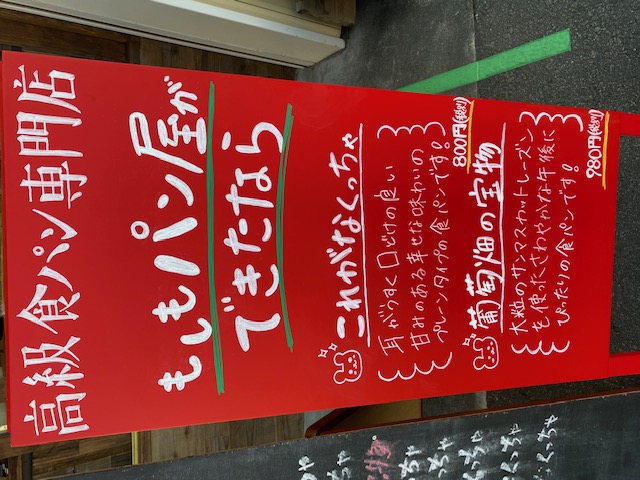 高級食パン専門店
もしもパン屋が
できたなら
これがなくっちゃ
800円(税別)
耳がうすく口どけの良い
甘みのある幸せな味わいの
プレーンタイプの食パンです。
葡萄畑の宝物
980円(税別)
大粒のサンマスカットレーズン
を使ったさわやかな午後に
ぴったりの食パンです。